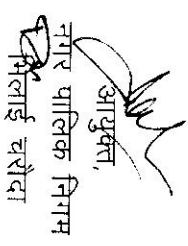 आयुक्त,
नगर पालिक निगम
भिलाई चरोदा